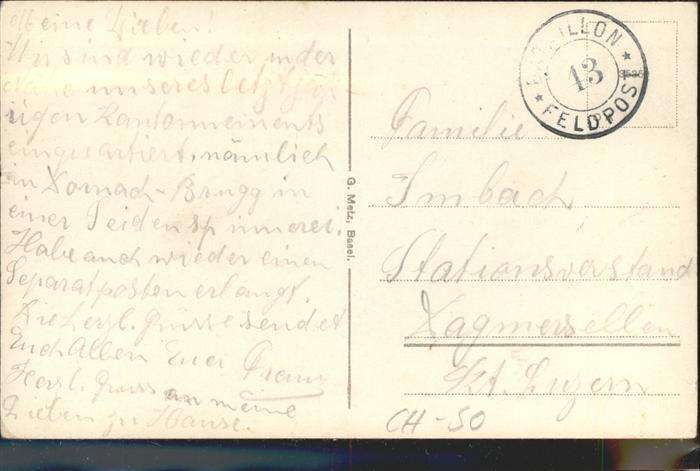 Meine Lieben!
Wir sind wieder in der
Nähe unseres letztjäh-
rigen Kantonnements
einquartiert, nämlich
in Dornach-Brugg in
einer Seidenspinnerei.
Habe auch wieder einen
Separatposten erlangt.
Viele herzl. Grüsse sendet
Euch Allen Euer Franz
Herzl. Gruss an meine
Lieben zu Hause.
G. Metz, Basel.
BATAILLON
13
FELDPOST
Familie
Imbach
Stationsvorstand
Dagmersellen
Kt. Luzern
CH-SO